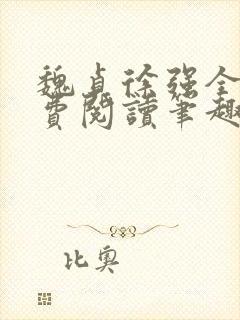 魏貞徐强全
費閱讀筆趣
比奧